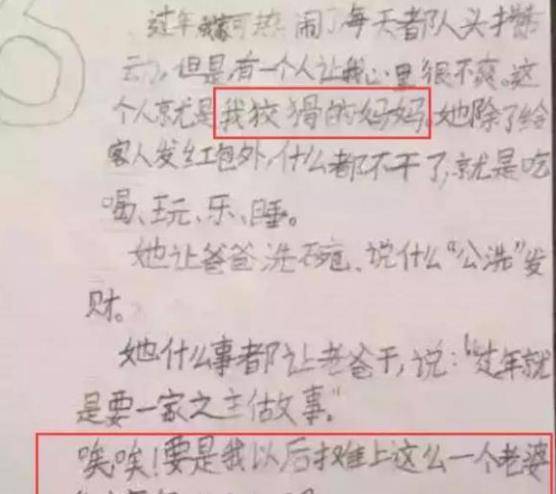 过年我家可热闹了每天都人头才攒
动,但是,有一个人让我心里很不爽。这
个人就是我狡猾的妈妈。她除了给
家人发红包外,什么都不干了,就是吃
喝、玩、乐、睡。
她让爸爸洗碗、说什么“公洗”发
财。
她什么事都让老爸干,说:“过年就
是要一家之主做故事。”
唉唉!要是我以后摊上这么一个老婆